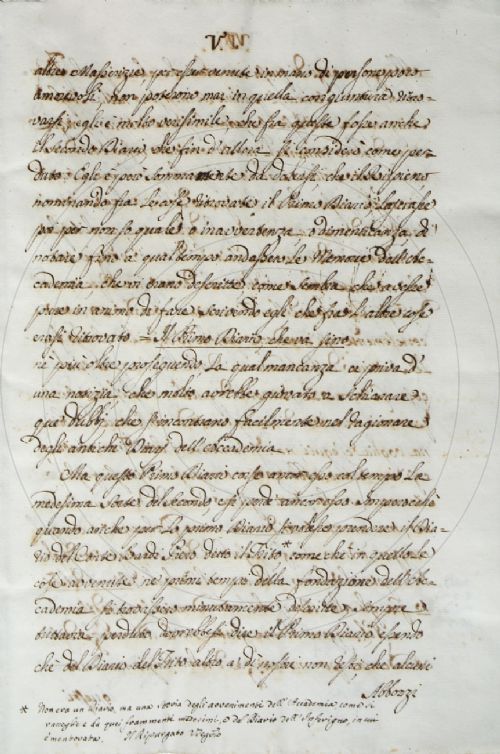 V.
altre Masserizie, per esser venute in mano di persone poco
amorevoli non poterono mai in quella congiuntura ritro-
varsi, egli è molto verisimile, che fra queste fosse anche
il secondo Diario, che fin d'allora si considerò come per-
duto. Cale è poi sommamente da dolersi che
nominando fra le cose ritrovate il Primo Diario
poi per non so quale o inavvertenza o dimenticanza di
notare fino a qual tempo andassero le Memorie dell'Ac-
cademia che in erano descritte come sembra che avesse
pure in animo di fare scrivendo egli che fra l'altre cose
erasi ritrovato = Il Primo Diario che va fino
nè più oltre proseguendo. La qual mancanza ci priva d'
una notizia che molto avrebbe giovato a schiarare
que' dubbj che s'incontrano facilmente nel ragionare
degli antichi Diarj dell'Accademia.
Ma questo Primo Diario corse ancor esso col tempo la
medesima sorte del secondo e si perdè ancor esso
quando anche per lo primo Diario si volesse prendere il Dia-
rio del Conte Bardi Piero detto il Trito* come che in quello le
cose avvenute ne' primi tempi della fondazione dell'Ac-
cademia si trovassero minutamente descritte, sempre
tuttavia perduto dovrebbesi dire il Primo Diario essendo
che del Diario del Trito altro a' dì nostri non resti che alcuni
Abbozzi
* Non era un Diario, ma una storia degli avvenimenti dell'Accademia come si
raccoglie e da quei frammenti medesimi, e dal Diario dell'Inferigno, in cui
è mentovata. Il Ripurgato